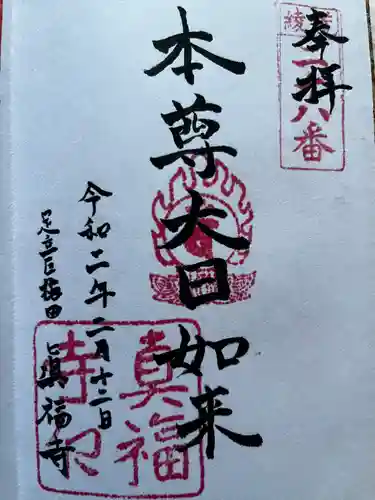 奉拝
八番
本尊大日如来
令和二年二月十二日
足立区梅田
眞福寺
真福
寺印